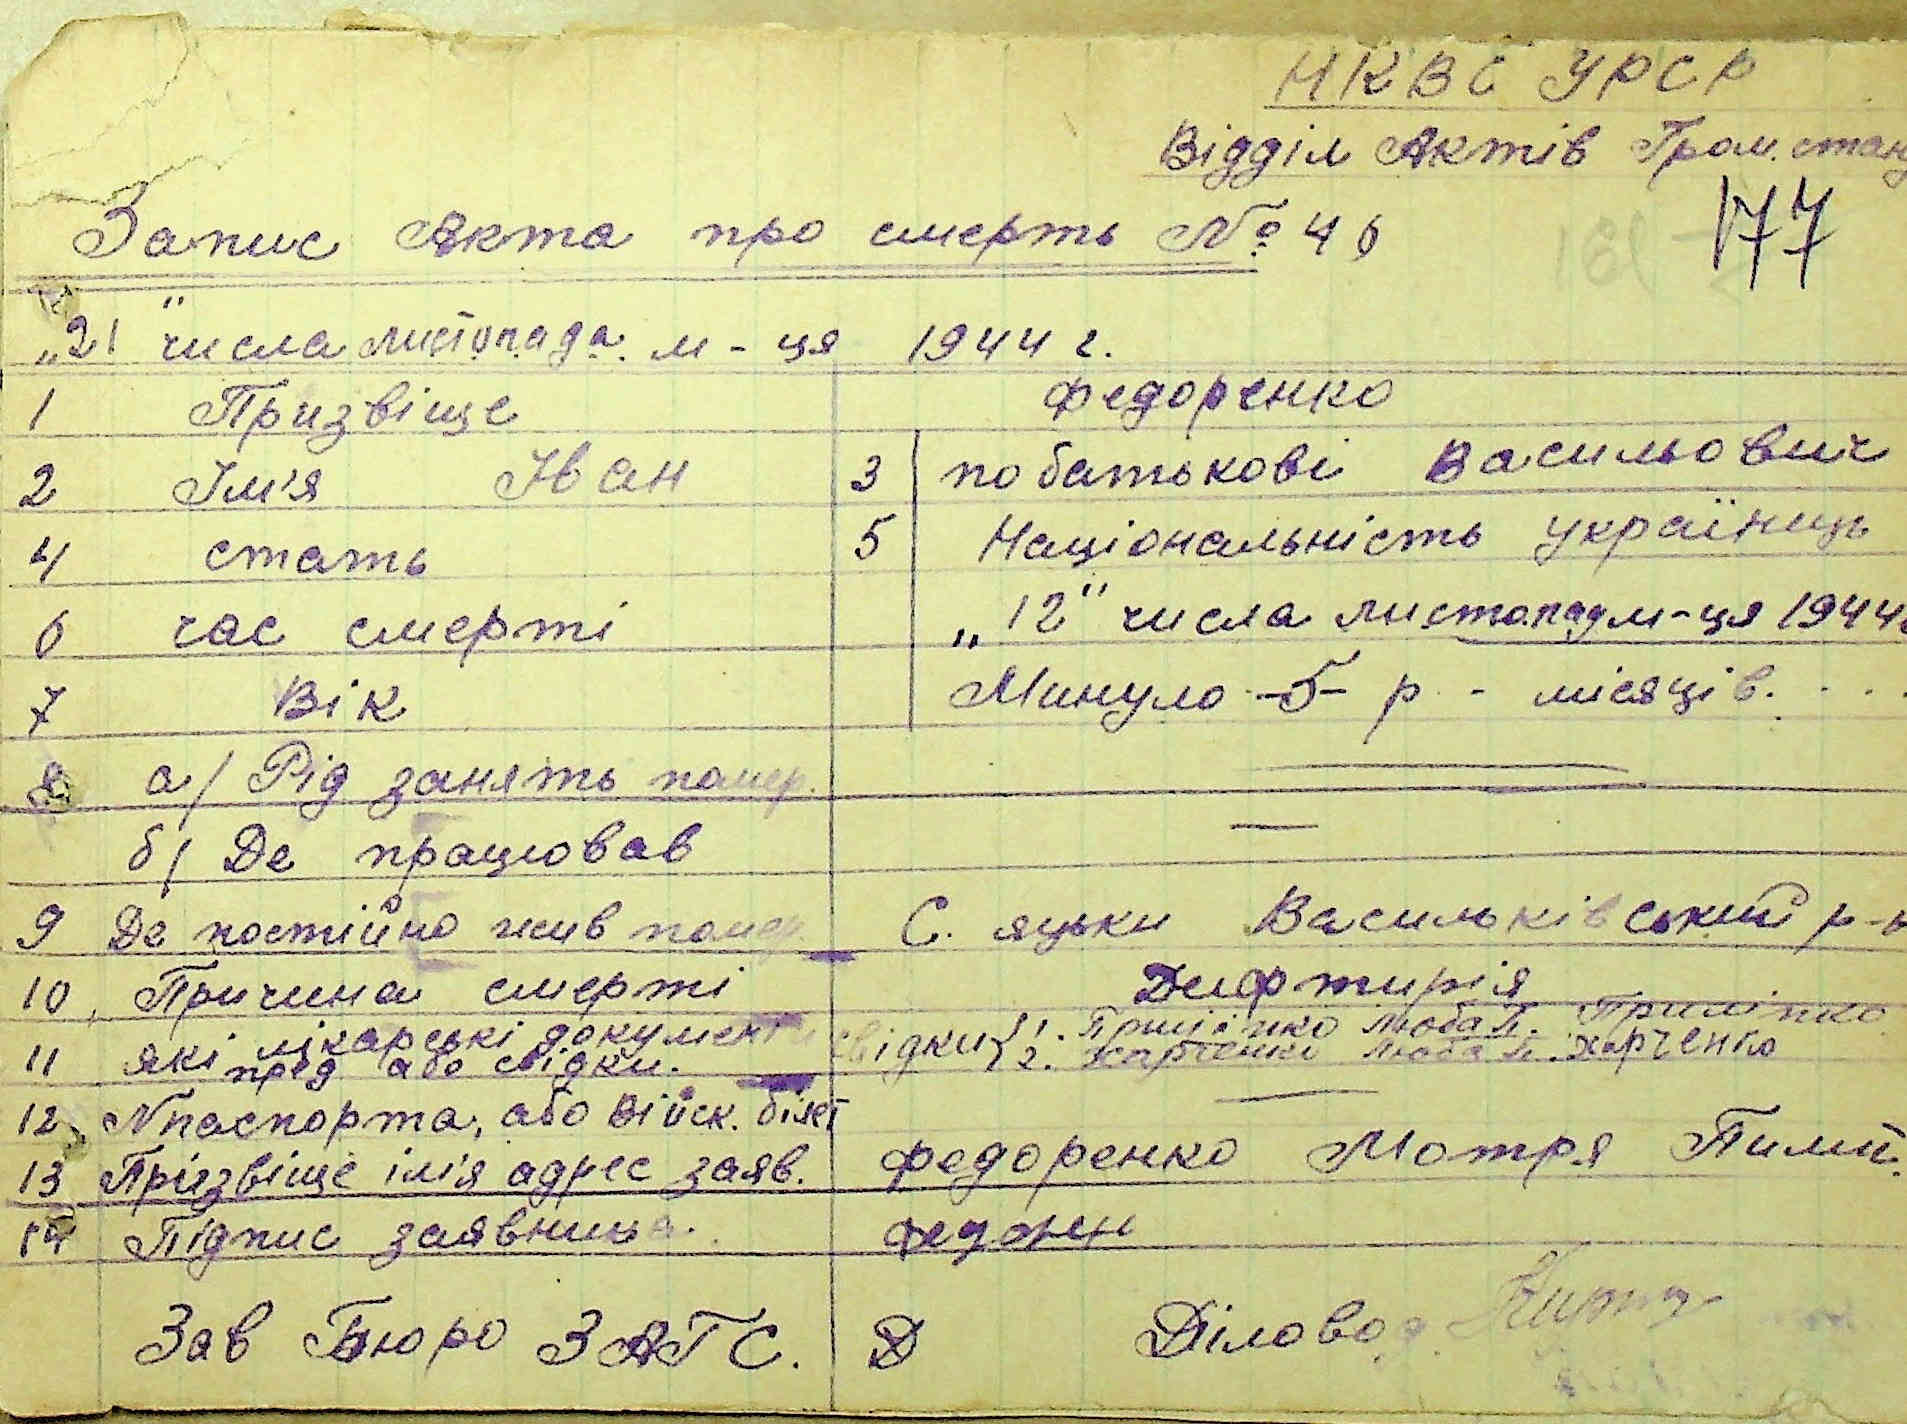 НКВС УРСР
Відділ Актів Гром. стану
177
Запис Акта про смерть № 46
„21" числа листопада м-ця 1944 г.
1 Призвіще Федоренко
2 Ім'я Іван 3 по батькові Васильович
4 стать 5 Національність українець
6 час смерті „12" числа листопад м-ця 1944
7 Вік Минуло -5- р - місяців. . . .
8 а/ Рід занять помер.
б/ Де працював —
9 Де постійно жив помер. С. Яцьки Васильківський р-н
10 Причина смерті Дифтирія
11 які лікарські документи свідки { 1. Приліпко Люба П. Приліпко
пред або свідки. 2. Харченко Люба Харченко
12 N паспорта, або війск. білет —
13 Прізвіще ім'я адрес заяв. Федоренко Мотря Пимон.
14 Підпис заявница.
Зав Бюро ЗАГС. Діловод